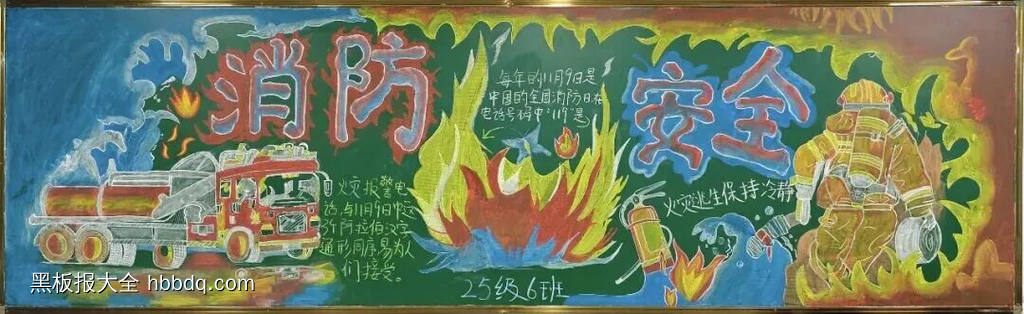 消防
安全
每年的11月9日是
中国的全国消防日,在
电话号码中"119"是
火灾报警电
话,与11月9日中的
月日阿拉伯数
通形同序,易为人
们接受。
火灾逃生保持冷静
25级6班
黑板报大全 hbbdq.com